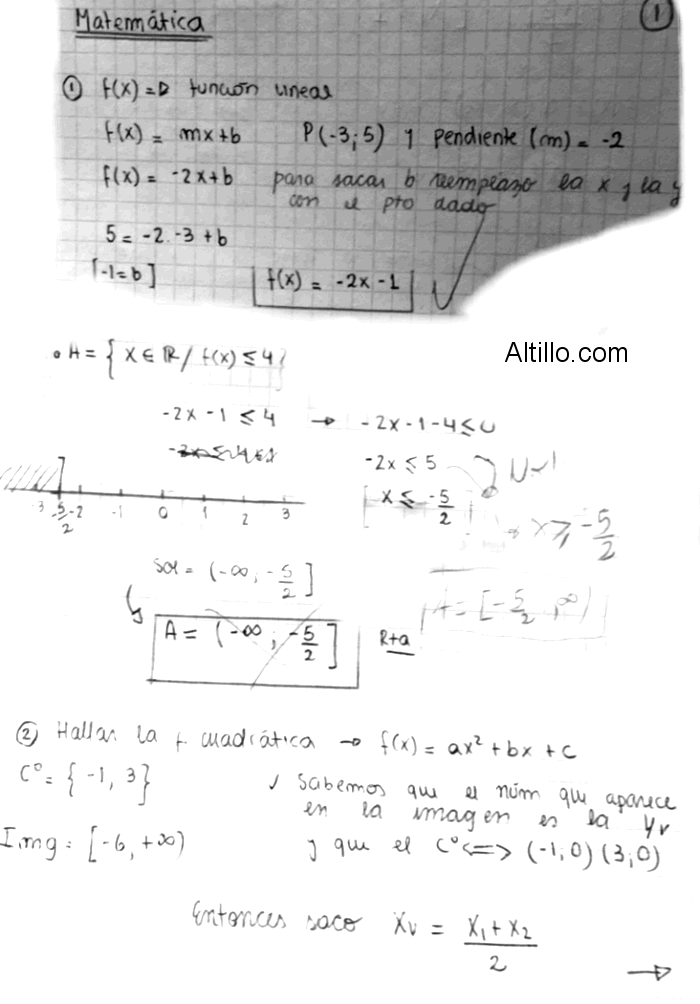 Matemática
1
① f(x) =D función lineal
f(x) = mx+b P(-3;5) y pendiente (m) = -2
f(x) = -2x+b para sacar b reemplazo la x y la y
con el pto dado
5 = -2.-3+b
[-1=b] f(x) = -2x-1 √
Altillo.com
• A = { x ∈ ℝ / f(x) ≤ 4}
-2x -1 ≤ 4 → -2x-1-4≤0
-2x ≤ 5
[x ≤ -5/2]
x ≥ -5/2
-3 -5/2 -2 -1 0 1 2 3
Sol = (-∞; -5/2]
A = [-5/2, ∞)
A = (-∞ ; -5/2] Rta
② Hallar la f cuadrática → f(x) = ax² + bx + c
C° = {-1, 3} √ Sabemos que el núm que aparece
en la imagen es la yv
Img = [-6, +∞) y que el C° <=> (-1;0) (3;0)
Entonces saco Xv = X₁ + X₂
2
→